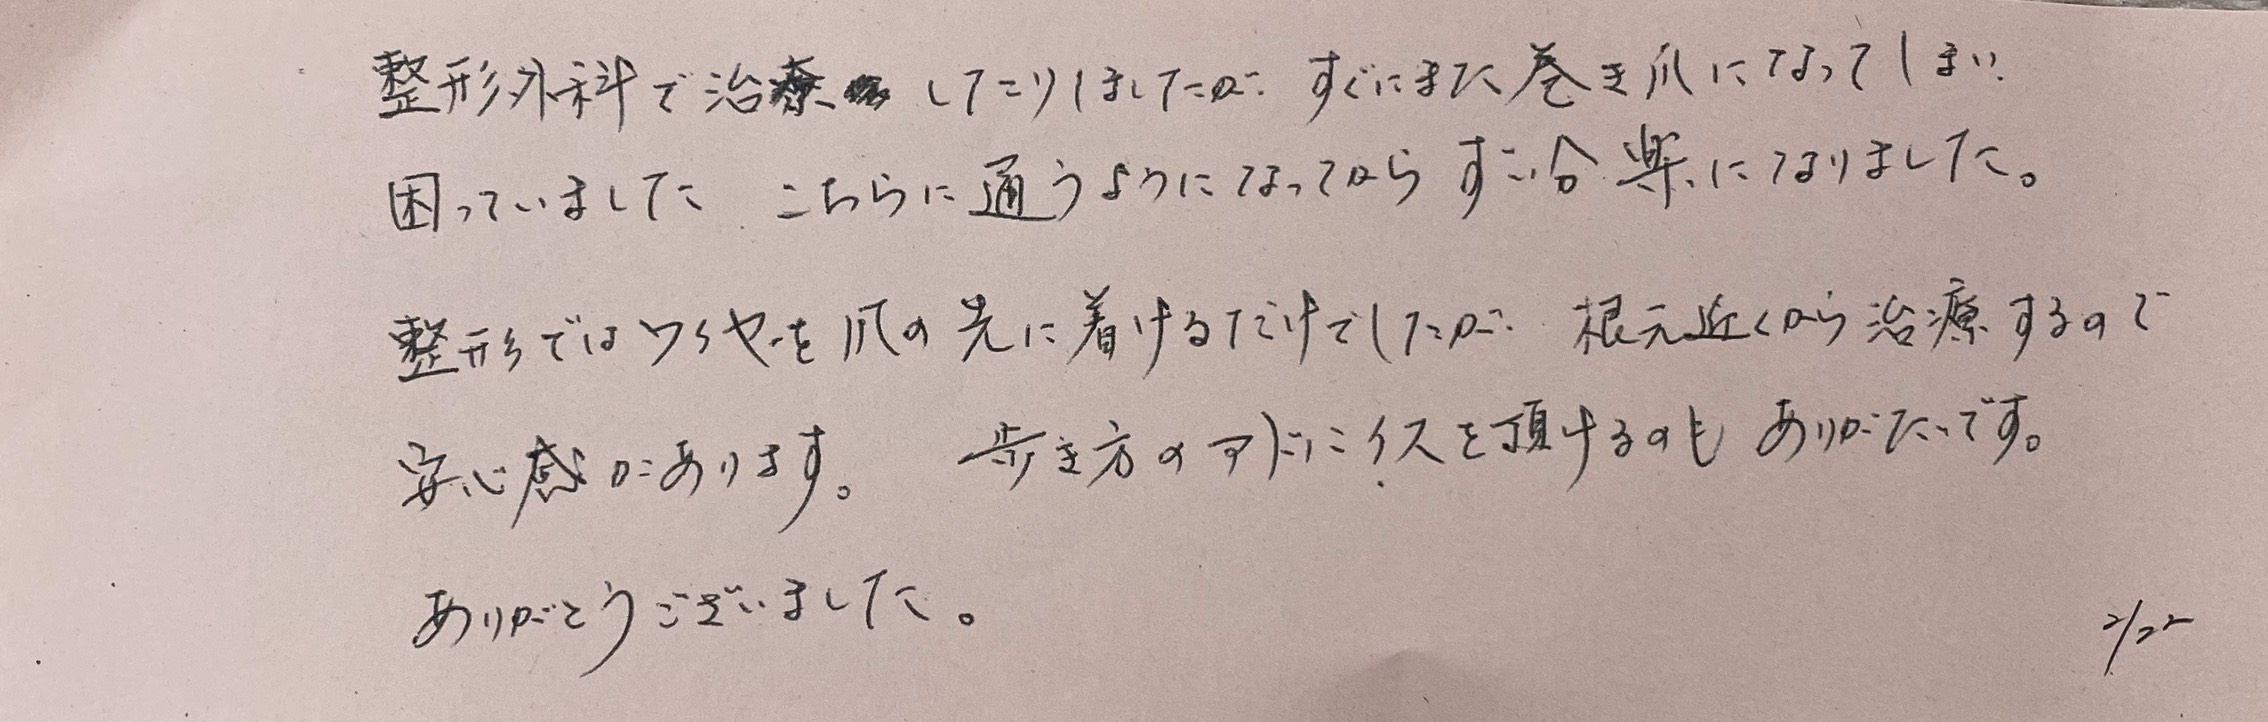 整形外科で治療したりしましたが すぐにまた巻き爪になってしまい
困っていました こちらに通うようになってから すごい楽になりました。
整形ではワイヤーを爪の先に着けるだけでしたが 根元近くから治療するので
安心感があります。 歩き方のアドバイスを頂けるのも ありがたいです。
ありがとうございました。
2/22